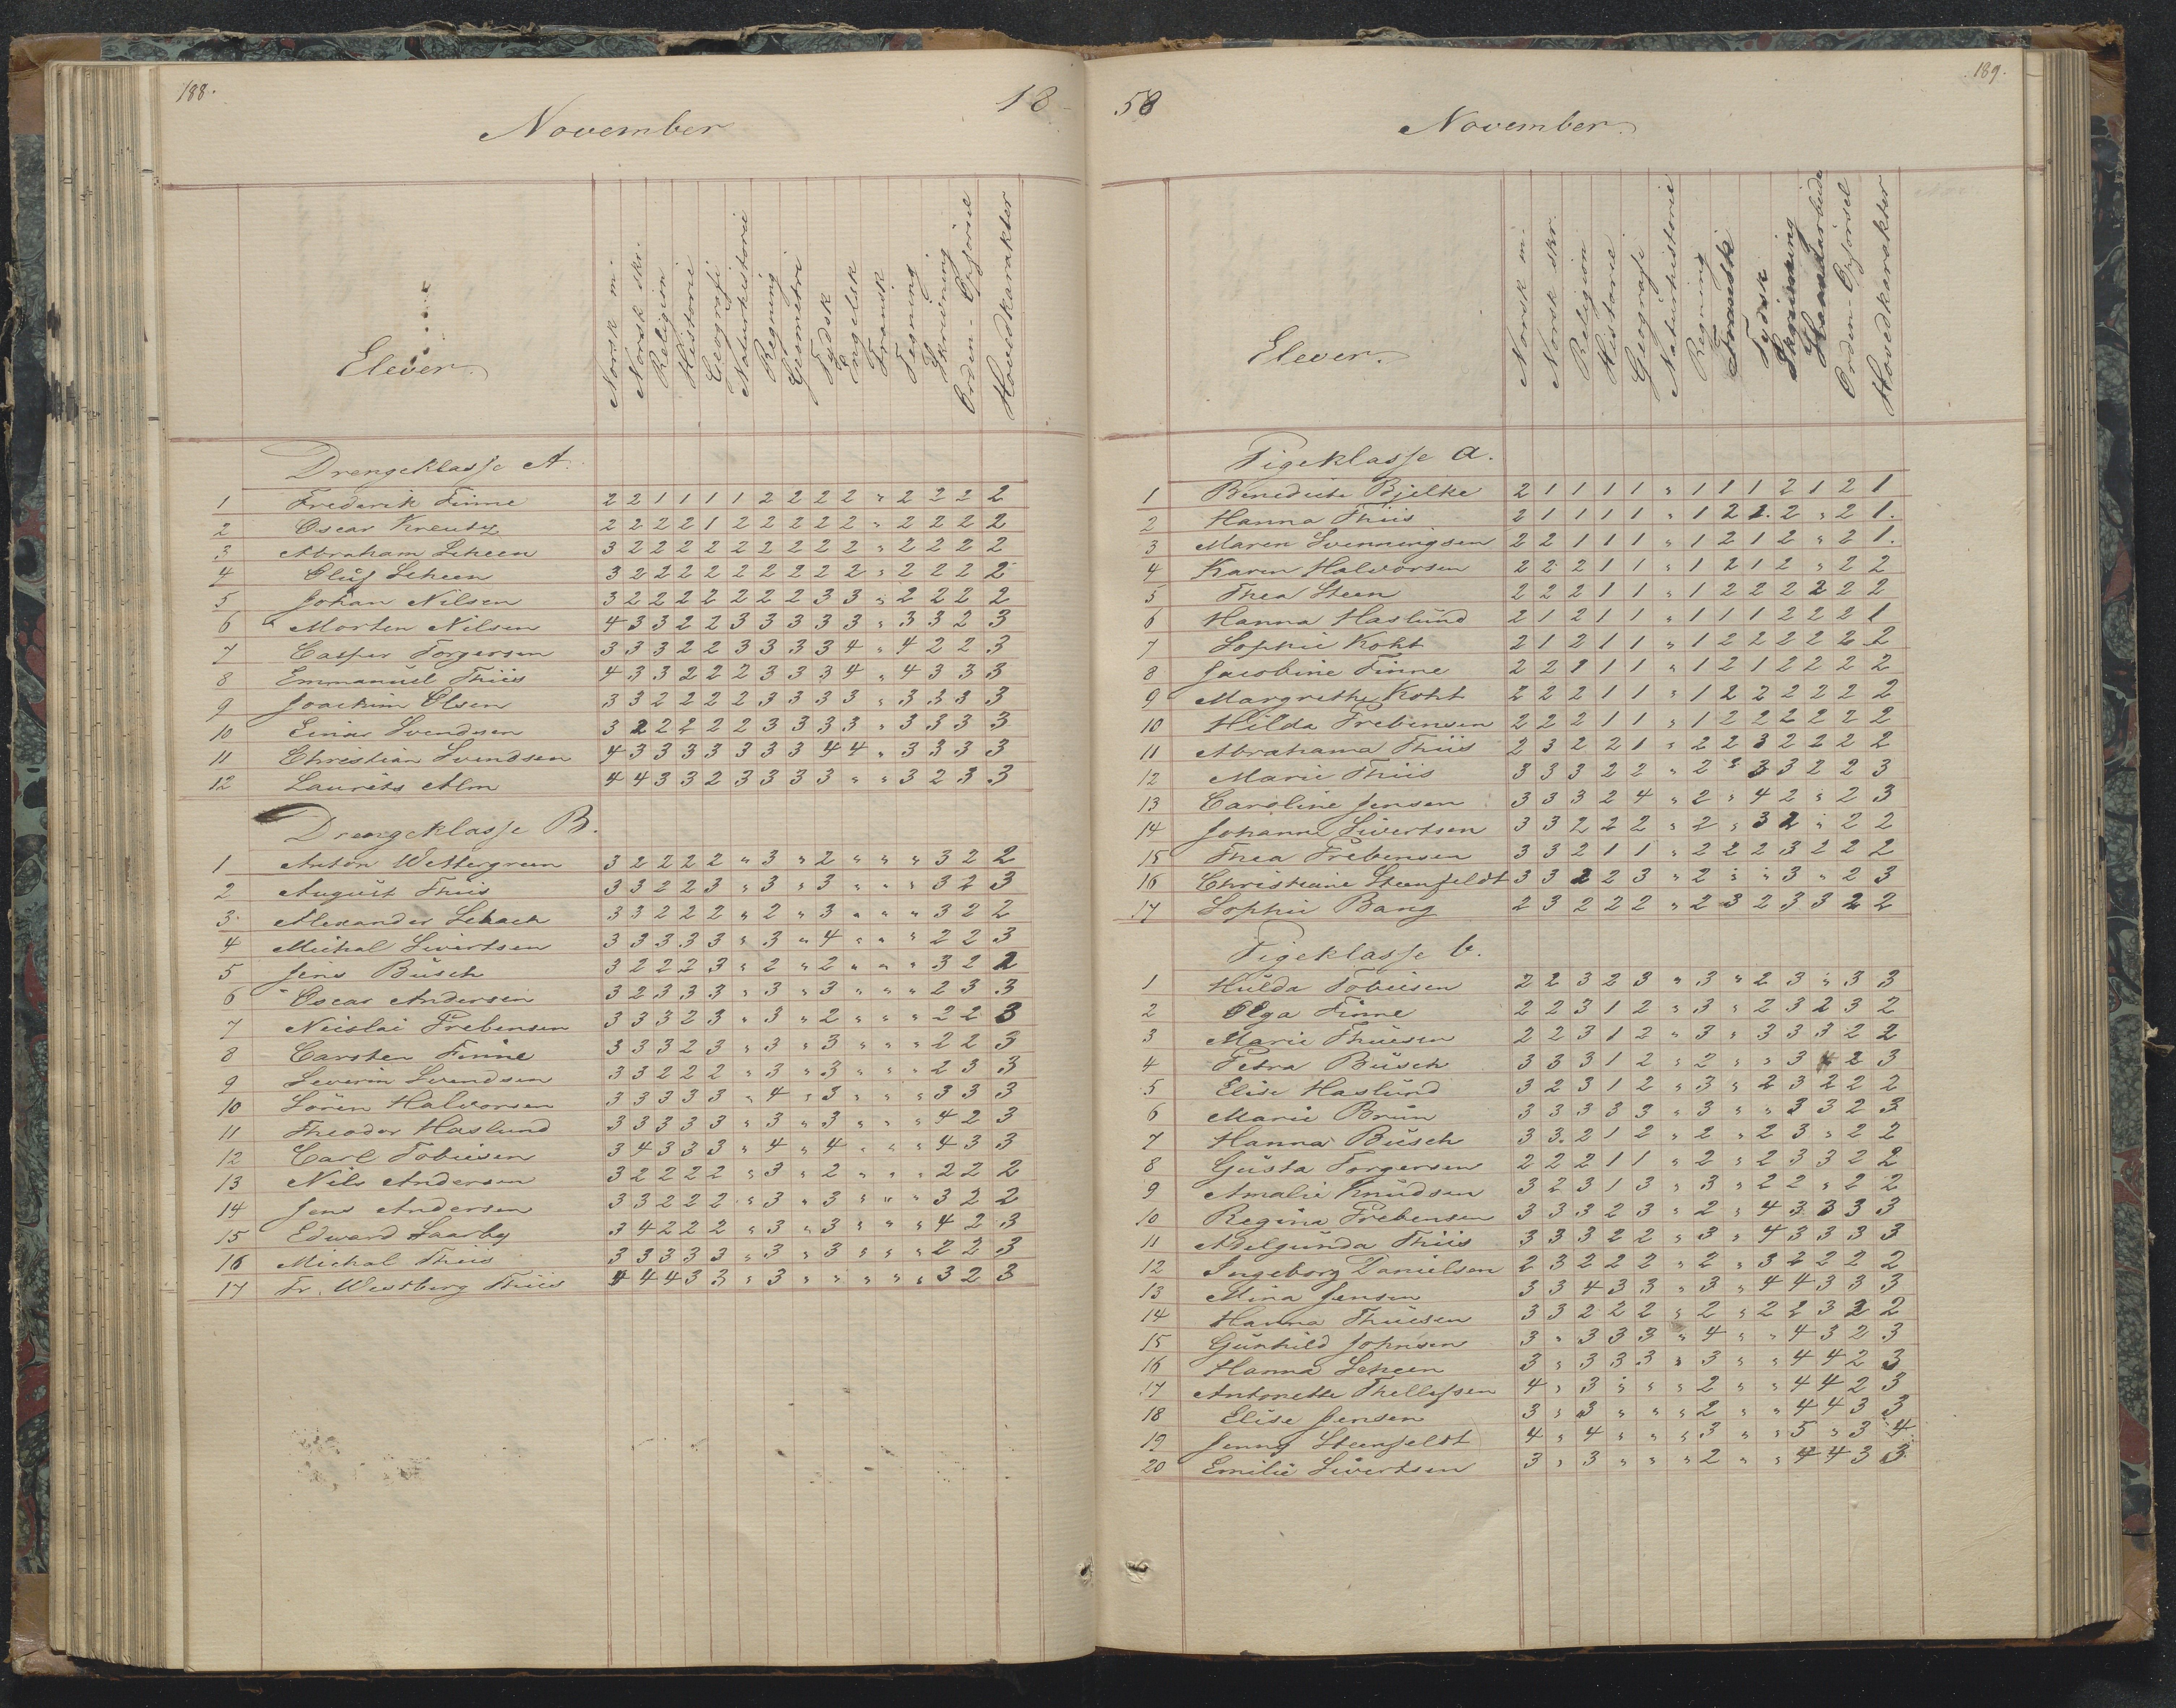 188.
18
November
Elever.
Norsk m.
Norsk skr.
Religion
Historie
Geografi
Naturhistorie
Regning
Geometri
Tydsk
Engelsk
Fransk
Tegning
Skrivning
Orden-Opførsel
Hovedkarakter
Drengeklasse A.
1 Frederik Finne 2 2 1 1 1 1 2 2 2 2 " 2 2 2 2
2 Oscar Kreutz 2 2 2 2 1 2 2 2 2 2 " 2 2 2 2
3 Abraham Scheen 3 2 2 2 2 2 2 2 2 2 " 2 2 2 2
4 Oluf Scheen 3 2 2 2 2 2 2 2 2 2 " 2 2 2 2
5 Johan Nilsen 3 2 2 2 2 2 2 2 3 3 " 2 2 2 2
6 Morten Nilsen 4 3 3 2 2 3 3 3 3 3 " 3 3 2 3
7 Casper Torgersen 3 3 3 2 2 3 3 3 3 4 " 4 2 2 3
8 Emmanuel Thiis 4 3 3 2 2 2 3 3 3 4 " 4 3 3 3
9 Joachim Olsen 3 3 2 2 2 2 3 3 3 3 " 3 3 3 3
10 Einar Svendsen 3 2 2 2 2 2 3 3 3 3 " 3 3 3 3
11 Christian Svendsen 4 3 3 3 3 3 3 3 4 4 " 3 3 3 3
12 Laurits Alm 4 4 3 3 2 3 3 3 3 " " 3 2 3 3
Drengeklasse B.
1 Anton Wettergreen 3 2 2 2 2 " 3 " 2 " " " 3 2 2
2 August Thiis 3 3 2 2 3 " 3 " 3 " " " 3 2 3
3 Alexander Schach 3 3 2 2 2 " 2 " 3 " " " 3 2 2
4 Michal Sivertsen 3 3 3 3 3 " 3 " 4 " " " 2 2 3
5 Jens Busch 3 2 2 2 3 " 2 " 2 " " " 3 2 2
6 Oscar Andersen 3 2 3 3 3 " 3 " 3 " " " 2 3 3
7 Nicolai Frebensen 3 3 3 2 3 " 3 " 2 " " " 2 2 3
8 Carsten Finne 3 3 3 2 3 " 3 " 3 " " " 2 2 3
9 Severin Svendsen 3 3 2 2 2 " 3 " 3 " " " 2 3 3
10 Sören Halvorsen 3 3 3 3 3 " 4 " 3 " " " 3 3 3
11 Theodor Haslund 3 3 3 3 3 " 3 " 3 " " " 4 2 3
12 Carl Tobiesen 3 4 3 3 3 " 4 " 4 " " " 4 3 3
13 Nils Andersen 3 2 2 2 2 " 3 " 2 " " " 2 2 2
14 Jens Andersen 3 3 2 2 2 " 3 " 3 " " " 3 2 2
15 Edward Saarby 3 4 2 2 2 " 3 " 3 " " " 4 2 3
16 Michal Thiis 3 3 3 3 3 " 3 " 3 " " " 2 2 3
17 Fr. Westberg Thiis 4 4 4 3 3 " 3 " " " " " 3 2 3
189.
58
November.
Elever.
Norsk m.
Norsk skr.
Religion
Historie
Geografi
Naturhistorie
Regning
Fransk
Tydsk
Skrivning
Haandarbeide
Orden-Opførsel
Hovedkarakter
Pigeklasse a.
1 Benedicte Bjelke 2 1 1 1 1 " 1 1 1 2 1 2 1
2 Hanna Thiis 2 1 1 1 1 " 1 2 2. 2 " 2 1.
3 Maren Svenningsen 2 2 1 1 1 " 1 2 1 2 " 2 1.
4 Karen Halvorsen 2 2 2 1 1 " 1 2 1 2 " 2 2
5 Thea Steen 2 2 2 1 1 " 1 2 2 2 2 2 2
6 Hanna Haslund 2 1 2 1 1 " 1 1 1 2 2 2 1
7 Sophie Koht 2 1 2 1 1 " 1 2 2 2 2 2 2
8 Jacobine Finne 2 2 1 1 1 " 1 2 1 2 2 2 2
9 Margrethe Koht 2 2 2 1 1 " 1 2 2 2 2 2 2
10 Hilda Frebensen 2 2 2 1 1 " 1 2 2 2 2 2 2
11 Abrahama Thiis 2 3 2 2 1 " 2 2 3 2 2 2 2
12 Marie Thiis 3 3 3 2 2 " 2 " 3 3 2 2 3
13 Caroline Jensen 3 3 3 2 4 " 2 " 4 2 " 2 3
14 Johanne Sivertsen 3 3 2 2 2 " 2 " 3 2 " 2 2
15 Thea Frebensen 3 3 2 1 1 " 2 2 2 3 2 2 2
16 Christiane Steenfeldt 3 3 2 2 3 " 2 " " 3 " 2 3
17 Sophie Bang 2 3 2 2 2 " 2 3 2 3 3 2 2
Pigeklasse b.
1 Hulda Tobiesen 2 2 3 2 3 " 3 " 2 3 " 3 3
2 Olga Finne 2 2 3 1 2 " 3 " 2 3 2 3 2
3 Marie Thuesen 2 2 3 1 2 " 3 " 3 3 3 2 2
4 Petra Busch 3 3 3 1 2 " 2 " " 3 4 2 3
5 Elise Haslund 3 2 3 1 2 " 3 " 2 3 2 2 2
6 Marie Brun 3 3 3 3 3 " 3 " " 3 3 2 3
7 Hanna Busch 3 3. 2 1 2 " 2 " 2 3 " 2 2
8 Gusta Torgersen 2 2 2 1 1 " 2 " 2 3 3 2 2
9 Amalie Knudsen 3 2 3 1 3 " 3 " 2 2 " 2 2
10 Regina Frebensen 3 3 3 2 3 " 2 " 4 3 3 3 3
11 Adelgunda Thiis 3 3 3 2 2 " 3 " 4 3 3 3 3
12 Ingeborg Danielsen 2 3 2 2 2 " 2 " 3 2 2 2 2
13 Mina Jensen 3 3 4 3 3 " 3 " 4 4 3 3 3
14 Hanna Thuesen 3 3 2 2 2 " 2 " 2 2 3 2 2
15 Gunhild Johnsen 3 " 3 3 3 " 4 " " 4 3 2 3
16 Hanna Scheen 3 " 3 3 3 " 3 " " 4 4 2 3
17 Antonette Thellefsen 4 " 3 " " " 2 " " 4 4 2 3
18 Elise Jensen 3 " 3 " " " 2 " " 4 4 3 3
19 Jenny Steenfeldt 4 " 4 " " " 3 " " 5 " 3 4
20 Emilie Sivertsen 3 " 3 " " " 2 " " 4 4 3 3